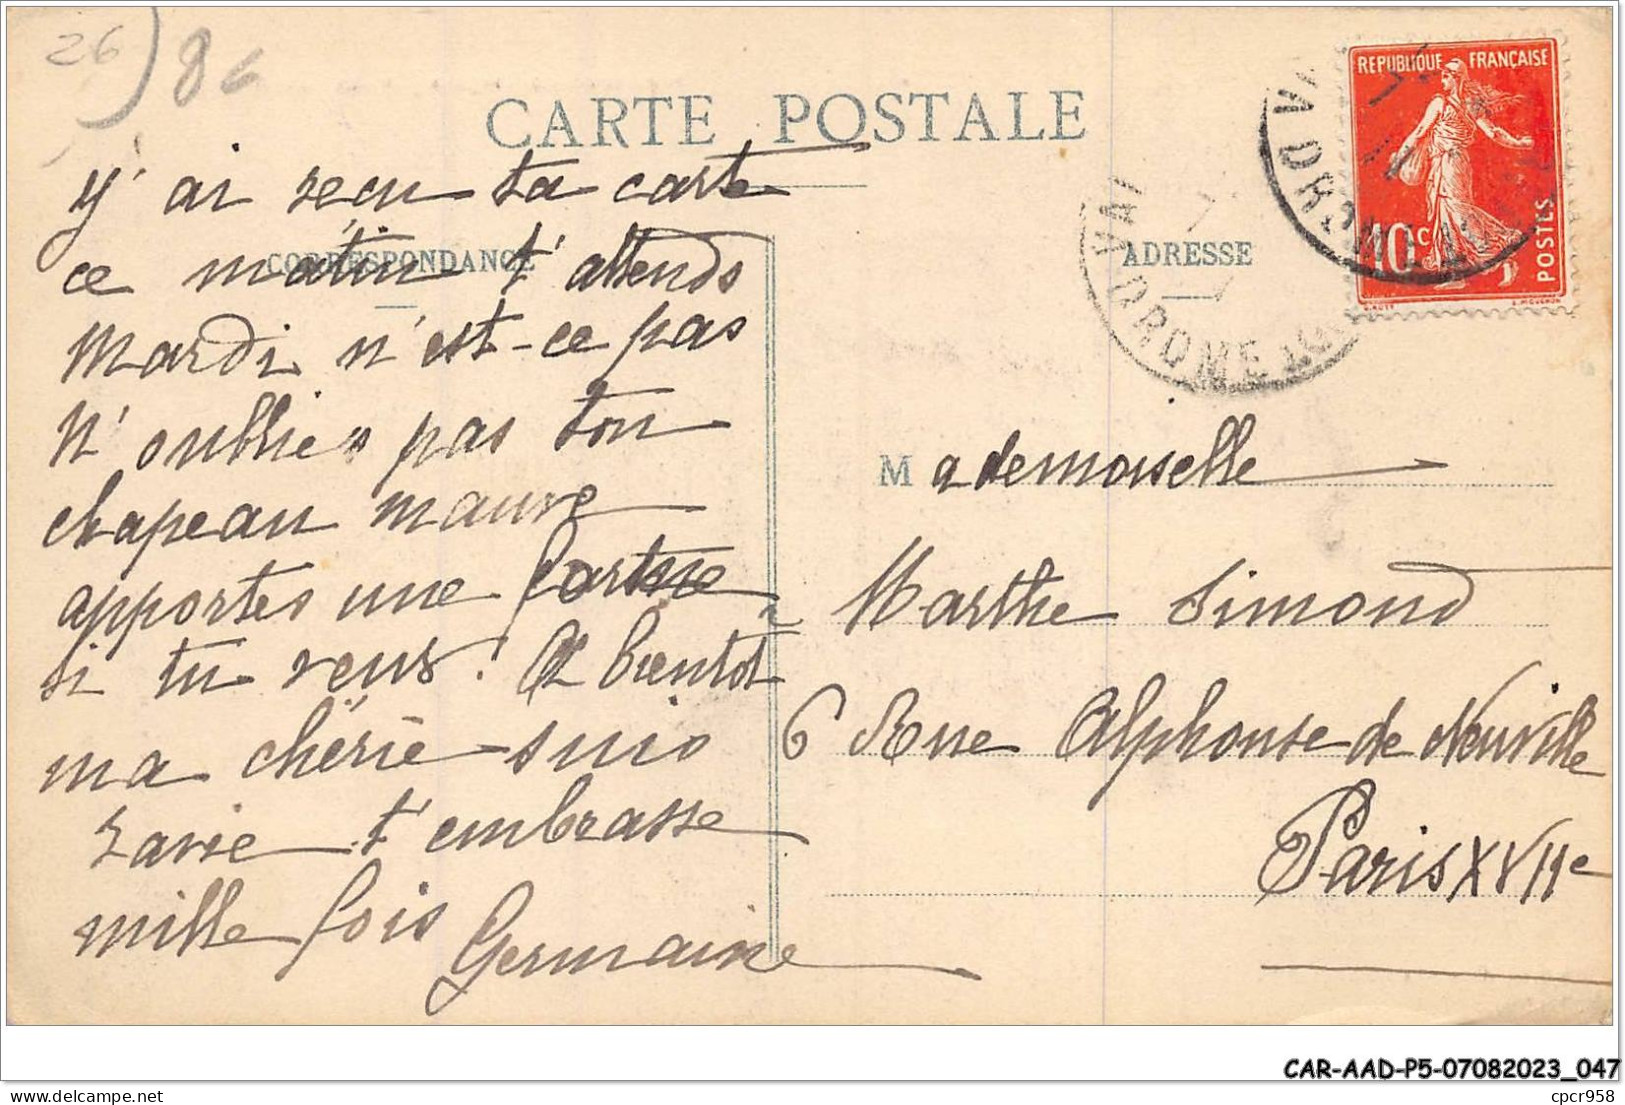 26
86
CARTE POSTALE
CORRESPONDANCE
ADRESSE
REPUBLIQUE FRANÇAISE
10c
POSTES
DROME
DROME
J'ai reçu ta carte
ce matin t'attends
Mardi n'est-ce pas
N'oublies pas ton
chapeau mauve
apportes une
si tu veux! A bientot
ma chérie suis
ravie t'embrasse
mille fois
Germaine
Mademoiselle
Marthe Simond
6 Rue Alphonse de Neuville
Paris XVIIe
CAR-AAD-P5-07082023_047
cpcr958